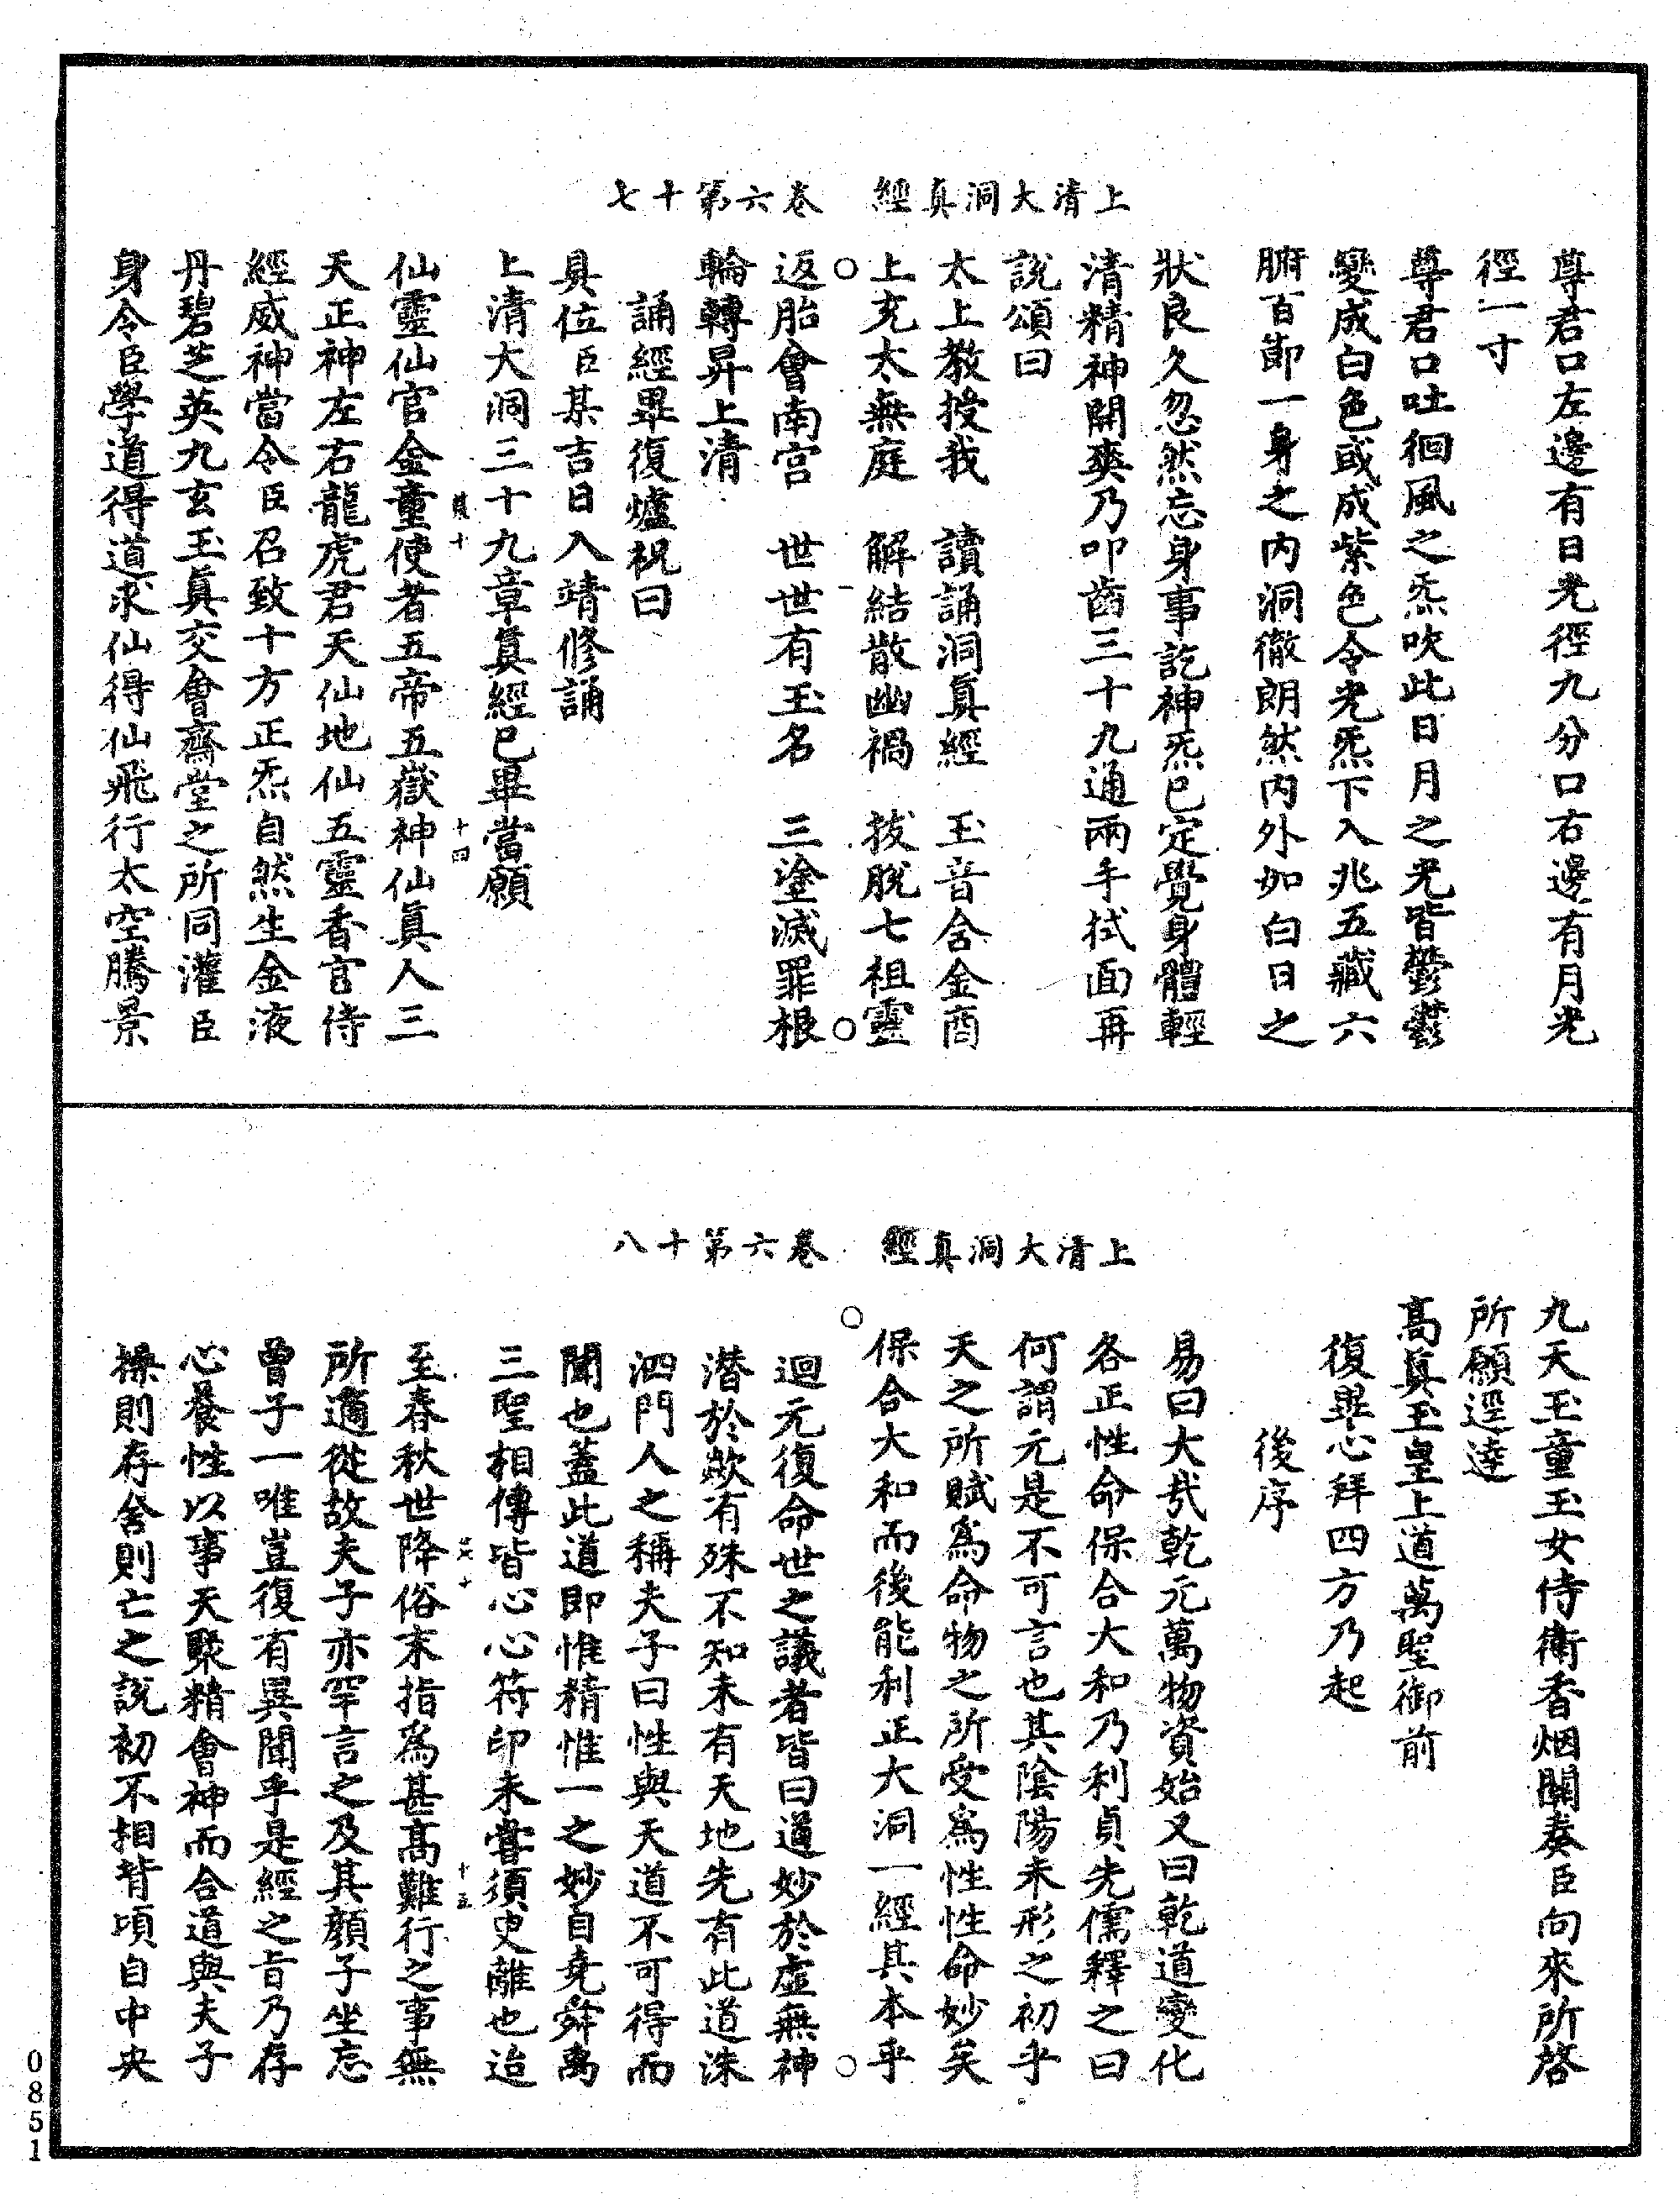 上清大洞真經　卷六第十七
尊君口左邊有日光徑九分口右邊有月光
徑一寸
尊君口吐徊風之炁吹此日月之光皆鬱鬱
變成白色或成紫色令光炁下入兆五藏六
腑百節一身之內洞徹朗然內外如白日之
狀良久忽然忘身事訖神炁已定覺身體輕
清精神開爽乃叩齒三十九通兩手拭面再
說頌曰
太上教授我　讀誦洞真經　玉音含金商
上充太無庭　解結散幽禍　拔脫七祖靈
返胎會南宮　世世有玉名　三塗滅罪根
輪轉昇上清
誦經畢復爐祝曰
具位臣某吉日入靖修誦
上清大洞三十九章真經已畢當願
十　十四
仙靈仙官金童使者五帝五嶽神仙真人三
天正神左右龍虎君天仙地仙五靈香官侍
經威神當令臣召致十方正炁自然生金液
丹碧芝英九玄玉真交會齋堂之所同灌臣
身令臣學道得道求仙得仙飛行太空騰景
上清大洞真經　卷六第十八
九天玉童玉女侍衛香烟關奏臣向來所啓
所願逕達
高真玉皇上道萬聖御前
復畢心拜四方乃起
後序
易曰大哉乾元萬物資始又曰乾道變化
各正性命保合大和乃利貞先儒釋之曰
何謂元是不可言也其陰陽未形之初乎
天之所賦為命物之所受為性性命妙矣
保合大和而後能利正大洞一經其本乎
迴元復命世之議者皆曰道妙於虛無神
潛於歘有殊不知未有天地先有此道洙
泗門人之稱夫子曰性與天道不可得而
聞也蓋此道即惟精惟一之妙自堯舜禹
三聖相傳皆心心符印未嘗須臾離也迨
十　十五
至春秋世降俗末指為甚高難行之事無
所適從故夫子亦罕言之及其顏子坐忘
曾子一唯豈復有異聞乎是經之旨乃存
心養性以事天聚精會神而合道與夫子
操則存舍則亡之說初不相背頃自中央
0851